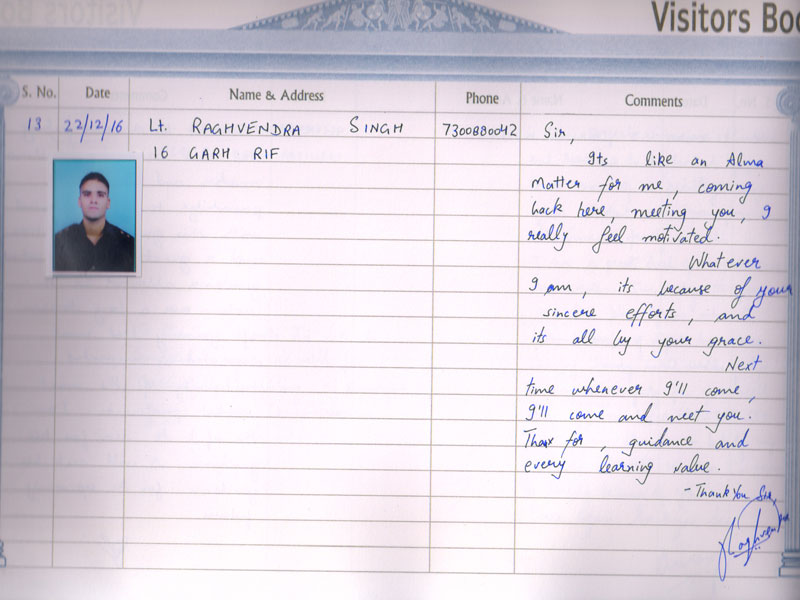 Visitors Boo
S. No. Date Name & Address Phone Comments
13 22/12/16 Lt. RAGHVENDRA SINGH 7300880042 Sir,
16 GARH RIF
Its like an Alma
Matter for me, coming
back here, meeting you, I
really feel motivated.
What ever
I am, its because of your
sincere efforts, and
its all by your grace.
Next
time whenever I'll come,
I'll come and meet you.
Thanx for, guidance and
every learning value.
- Thank You Sir,